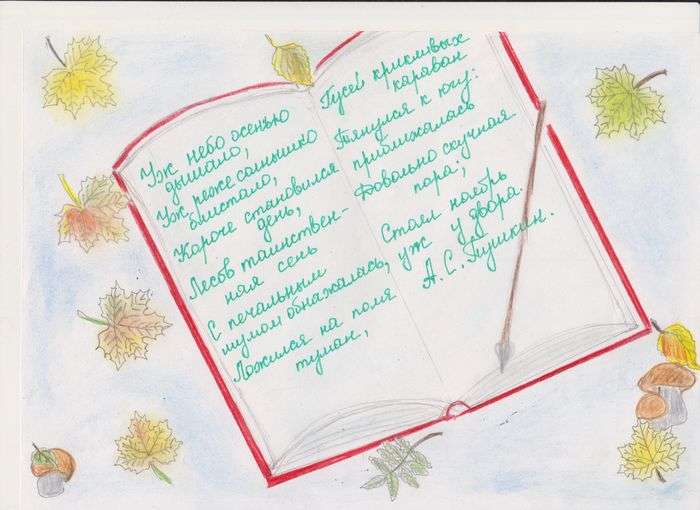 Уж небо осенью
дышало,
Уж реже солнышко
блистало,
Короче становился
день,
Лесов таинствен-
ная сень
С печальным
шумом обнажалась,
Ложился на поля
туман,
Гусей крикливых
караван
Тянулся к югу:
приближалась
Довольно скучная
пора;
Стоял ноябрь
уж у двора.
А.С. Пушкин.